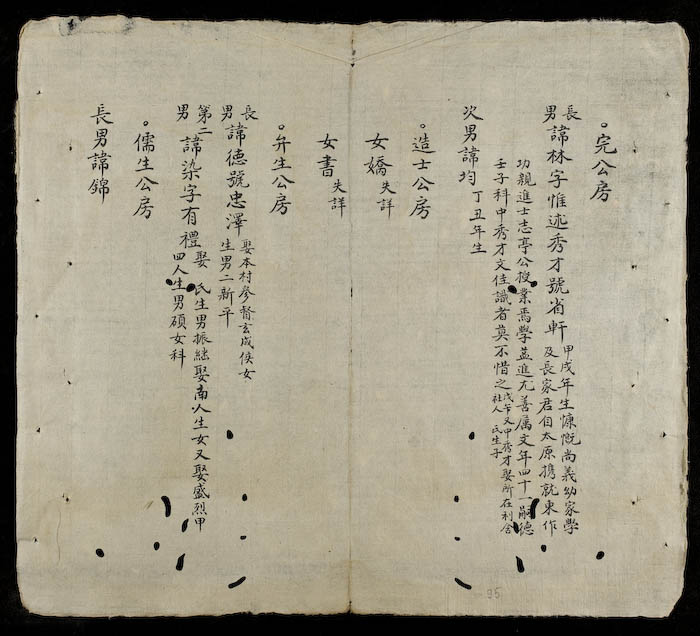 。完公房
長男諱林字惟述秀才號省軒
甲戌年生慷慨尚義幼家學
及長家君自太原携就東作
功親進士志亭公授業焉學益進尤善属文年四十一嗣德
壬子科中秀才文佳識者莫不惜之
戊午又中秀才娶所在利舍
社人 氏生子
次男諱均
丁丑年生
。造士公房
女嬌
失詳
女書
失詳
。弁生公房
長男諱德號忠澤
娶本村參督玄成侯女
生男二新平
第二男諱染字有禮
娶 氏生男振 娶南人生女又娶盛烈甲
四人生男碩女科
。儒生公房
長男諱錦
95